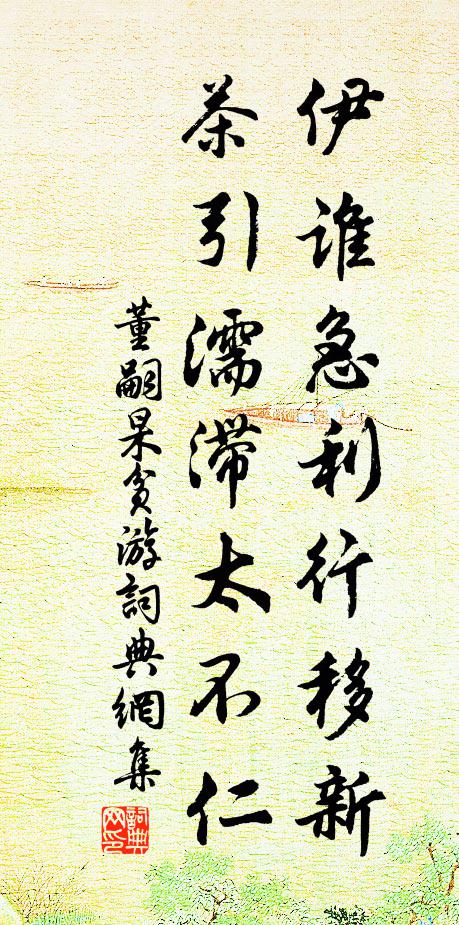 伊谁急利行移新
茶引濡滞太不仁
董嗣杲贫游詞典網集
詞典网印